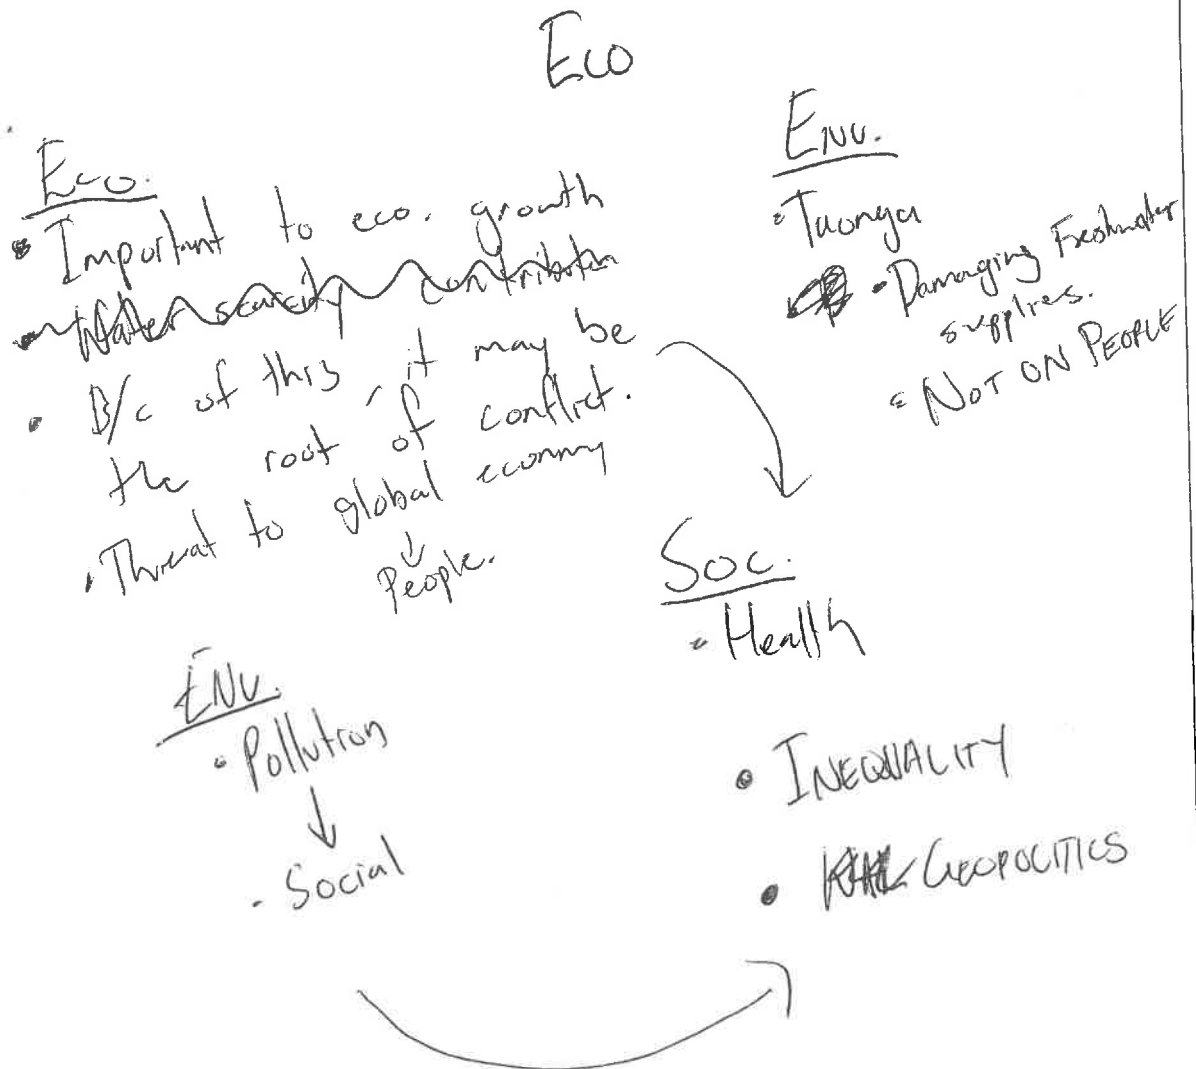 Eco
Eco.
• Important to eco. growth
• Water scarcity contribution
• B/c of this, it may be
the root of conflict.
• Threat to global economy
↓
People.
Env.
• Taonga
• Damaging Freshwater
supplies.
• NOT ON PEOPLE
Soc.
• Health
Env.
• Pollution
↓
• Social
• INEQUALITY
• GEOPOLITICS